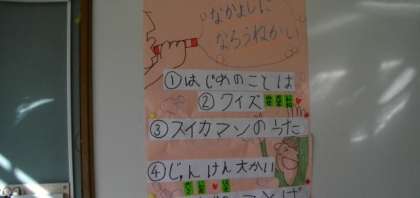 なかよしに
ならうねかい
①はじめのことば
②クイズ
③スイカマンのうた
④じゃんけん大かい